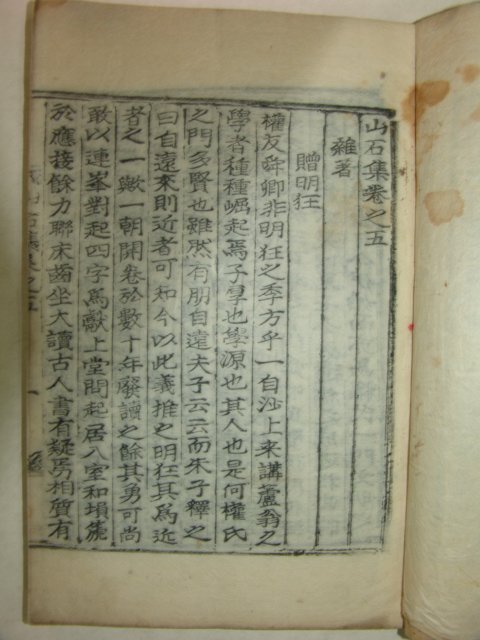 山石集卷之五
雜著
贈明狂
權友舜卿非明狂之季方乎一自沙上来講蘆翁之
學者種種崛起焉子享也學源也其人也是何權氏
之門多賢也雖然有朋自遠夫子云云而朱子釋之
曰自遠来則近者可知今以此義推之明狂其爲近
者之一歟一朝開卷於數十年廢讀之餘其勇可尚
敢以連峯對起四字爲獻上堂問起居入室和塤篪
於應接餘力聯床對坐大讀古人書有疑焉相質有
山石集卷之五
一